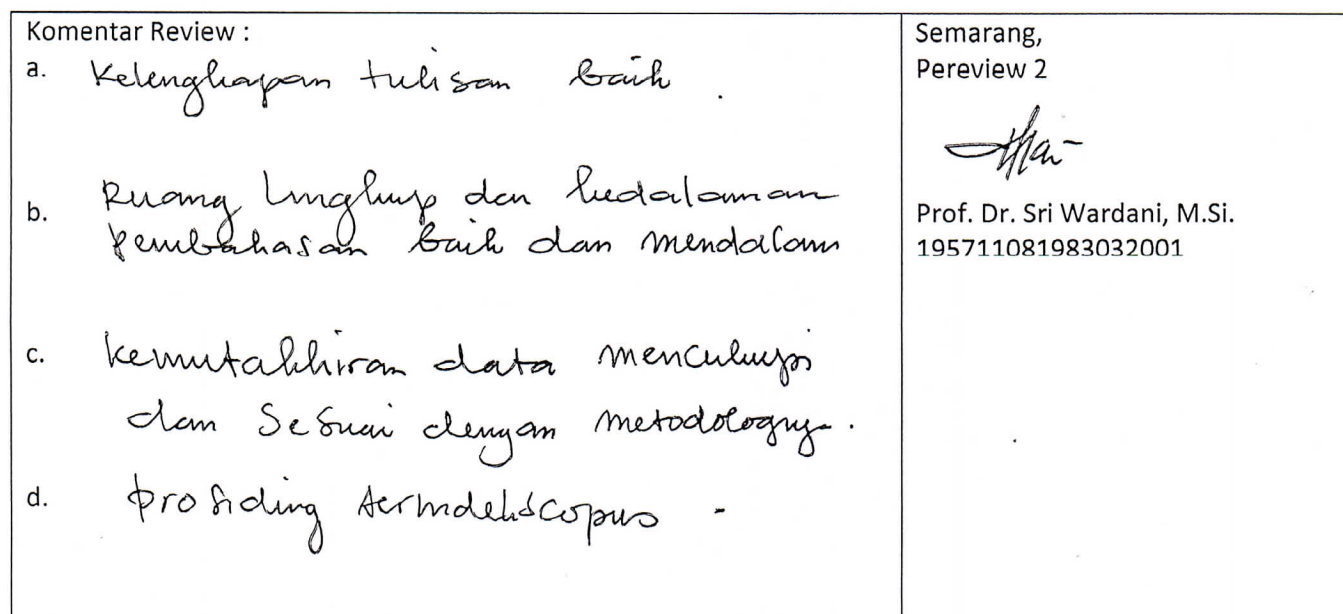 Komentar Review :
a. Kelengkapan tulisan baik .
b. Ruang lingkup dan kedalaman
pembahasan baik dan mendalam
c. Kemutakhiran data mencukupi
dan Sesuai dengan metodologny-.
d. prosiding terindeks scopus -
Semarang,
Pereview 2
Prof. Dr. Sri Wardani, M.Si.
195711081983032001